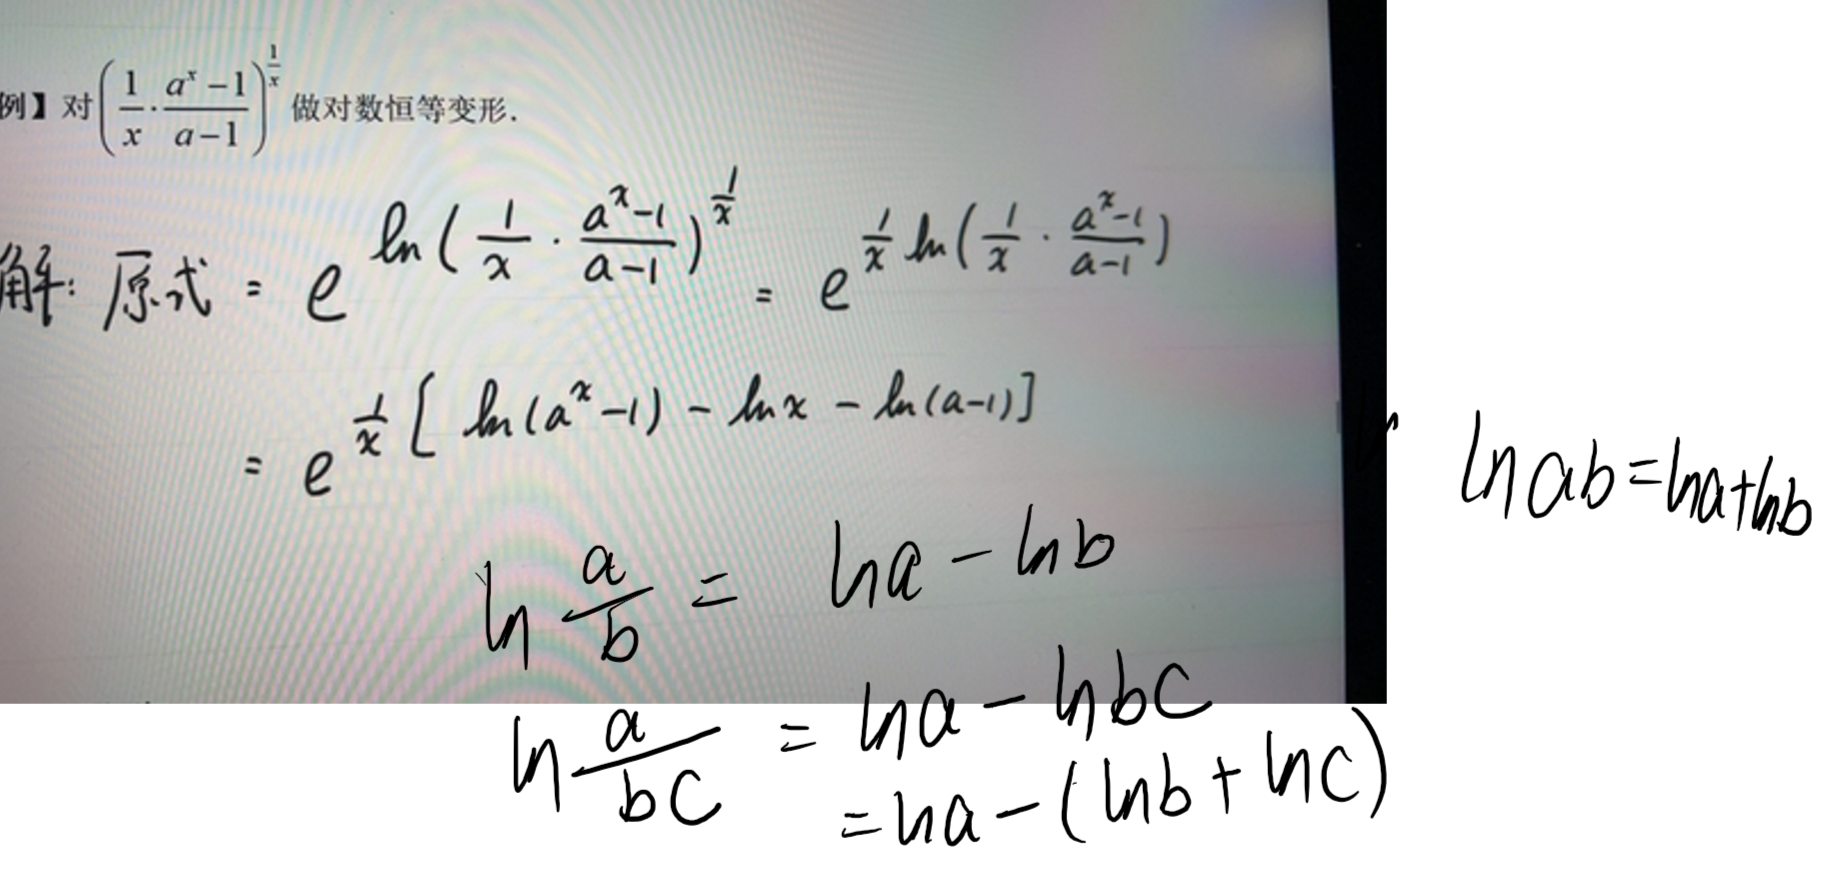 例】对 (1/x · (a^x − 1)/(a − 1))^(1/x) 做对数恒等变形.
解: 原式 = e^(ln(1/x · (a^x−1)/(a−1))^(1/x)) = e^(1/x ln(1/x · (a^x−1)/(a−1)))
= e^(1/x [ln(a^x−1) − ln x − ln(a−1)])
ln ab = ln a + ln b
ln a/b = ln a − ln b
ln a/bc = ln a − ln bc
= ln a − (ln b + ln c)